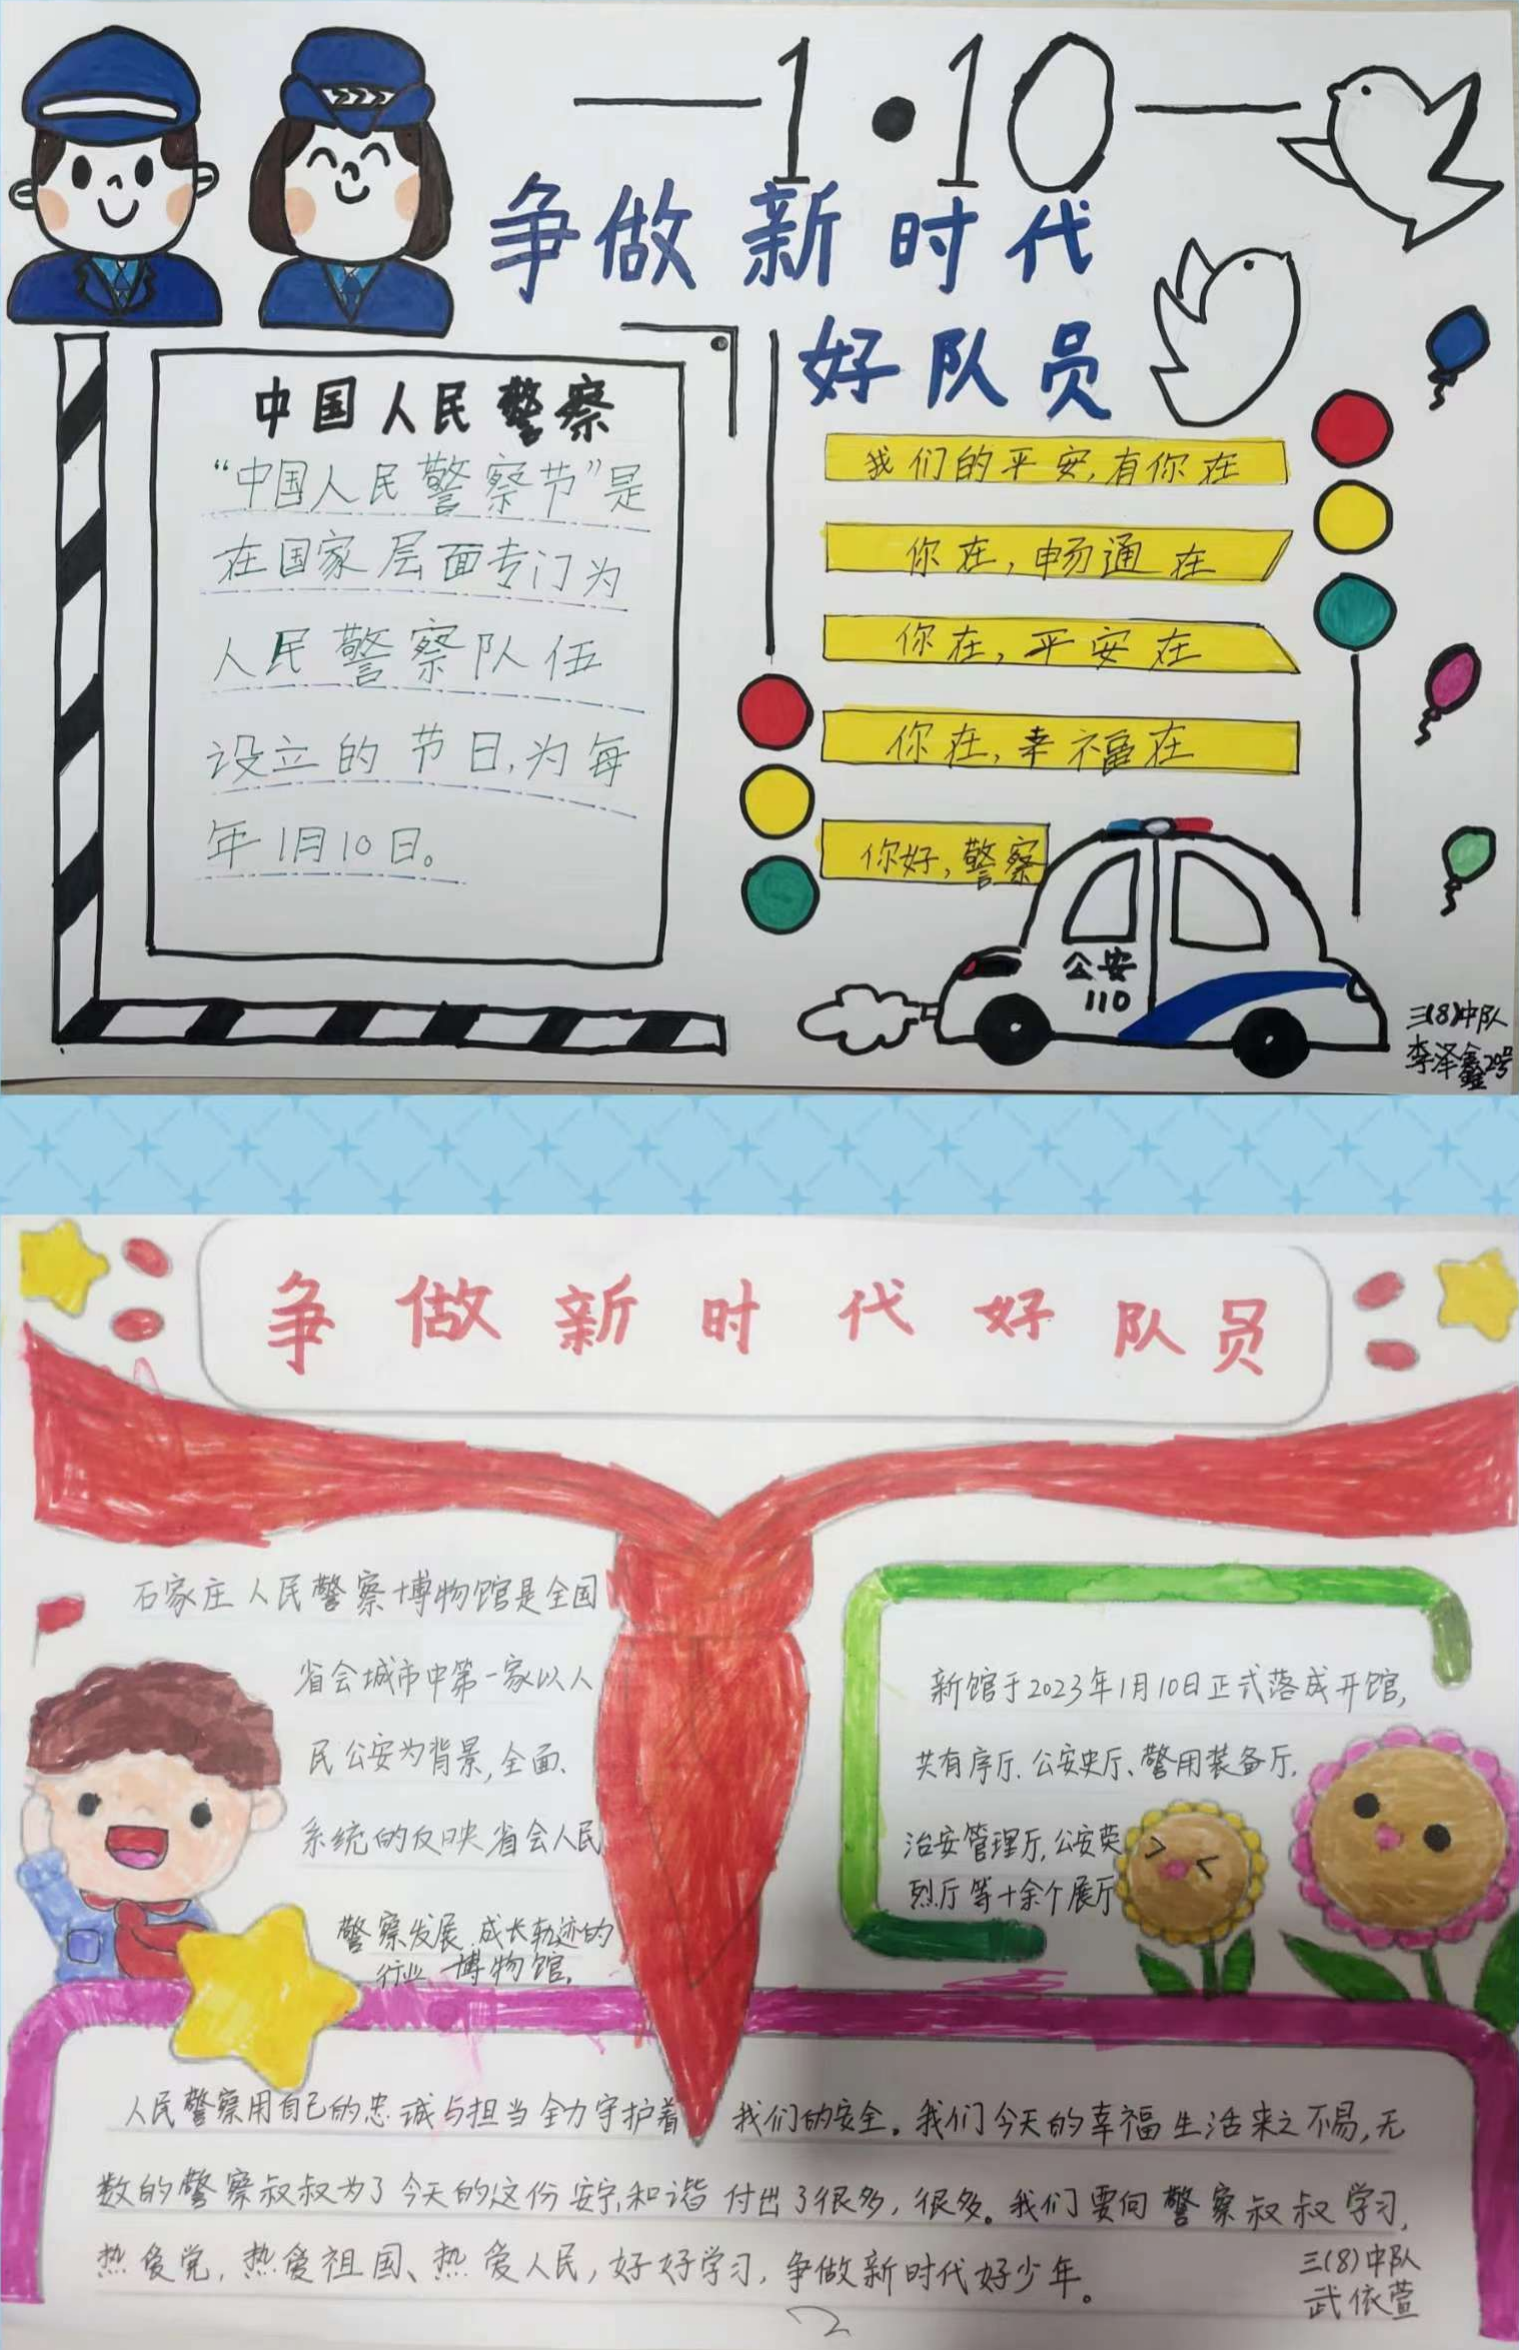 1·10
争做新时代
好队员
中国人民警察
“中国人民警察节”是
在国家层面专门为
人民警察队伍
设立的节日,为每
年1月10日。
我们的平安,有你在
你在,畅通在
你在,平安在
你在,幸福在
你好,警察
公安
110
三(8)中队
李泽鑫20号
争做新时代好队员
石家庄人民警察博物馆是全国
省会城市中第一家以人
民公安为背景,全面、
系统的反映省会人民
警察发展、成长轨迹的
行业博物馆。
新馆于2023年1月10日正式落成开馆,
共有序厅、公安史厅、警用装备厅、
治安管理厅,公安英
烈厅等十余个展厅
人民警察用自己的忠诚与担当全力守护着我们的安全。我们今天的幸福生活来之不易,无
数的警察叔叔为了今天的这份安宁和谐付出了很多,很多。我们要向警察叔叔学习,
热爱党,热爱祖国、热爱人民,好好学习,争做新时代好少年。
三(8)中队
武依萱